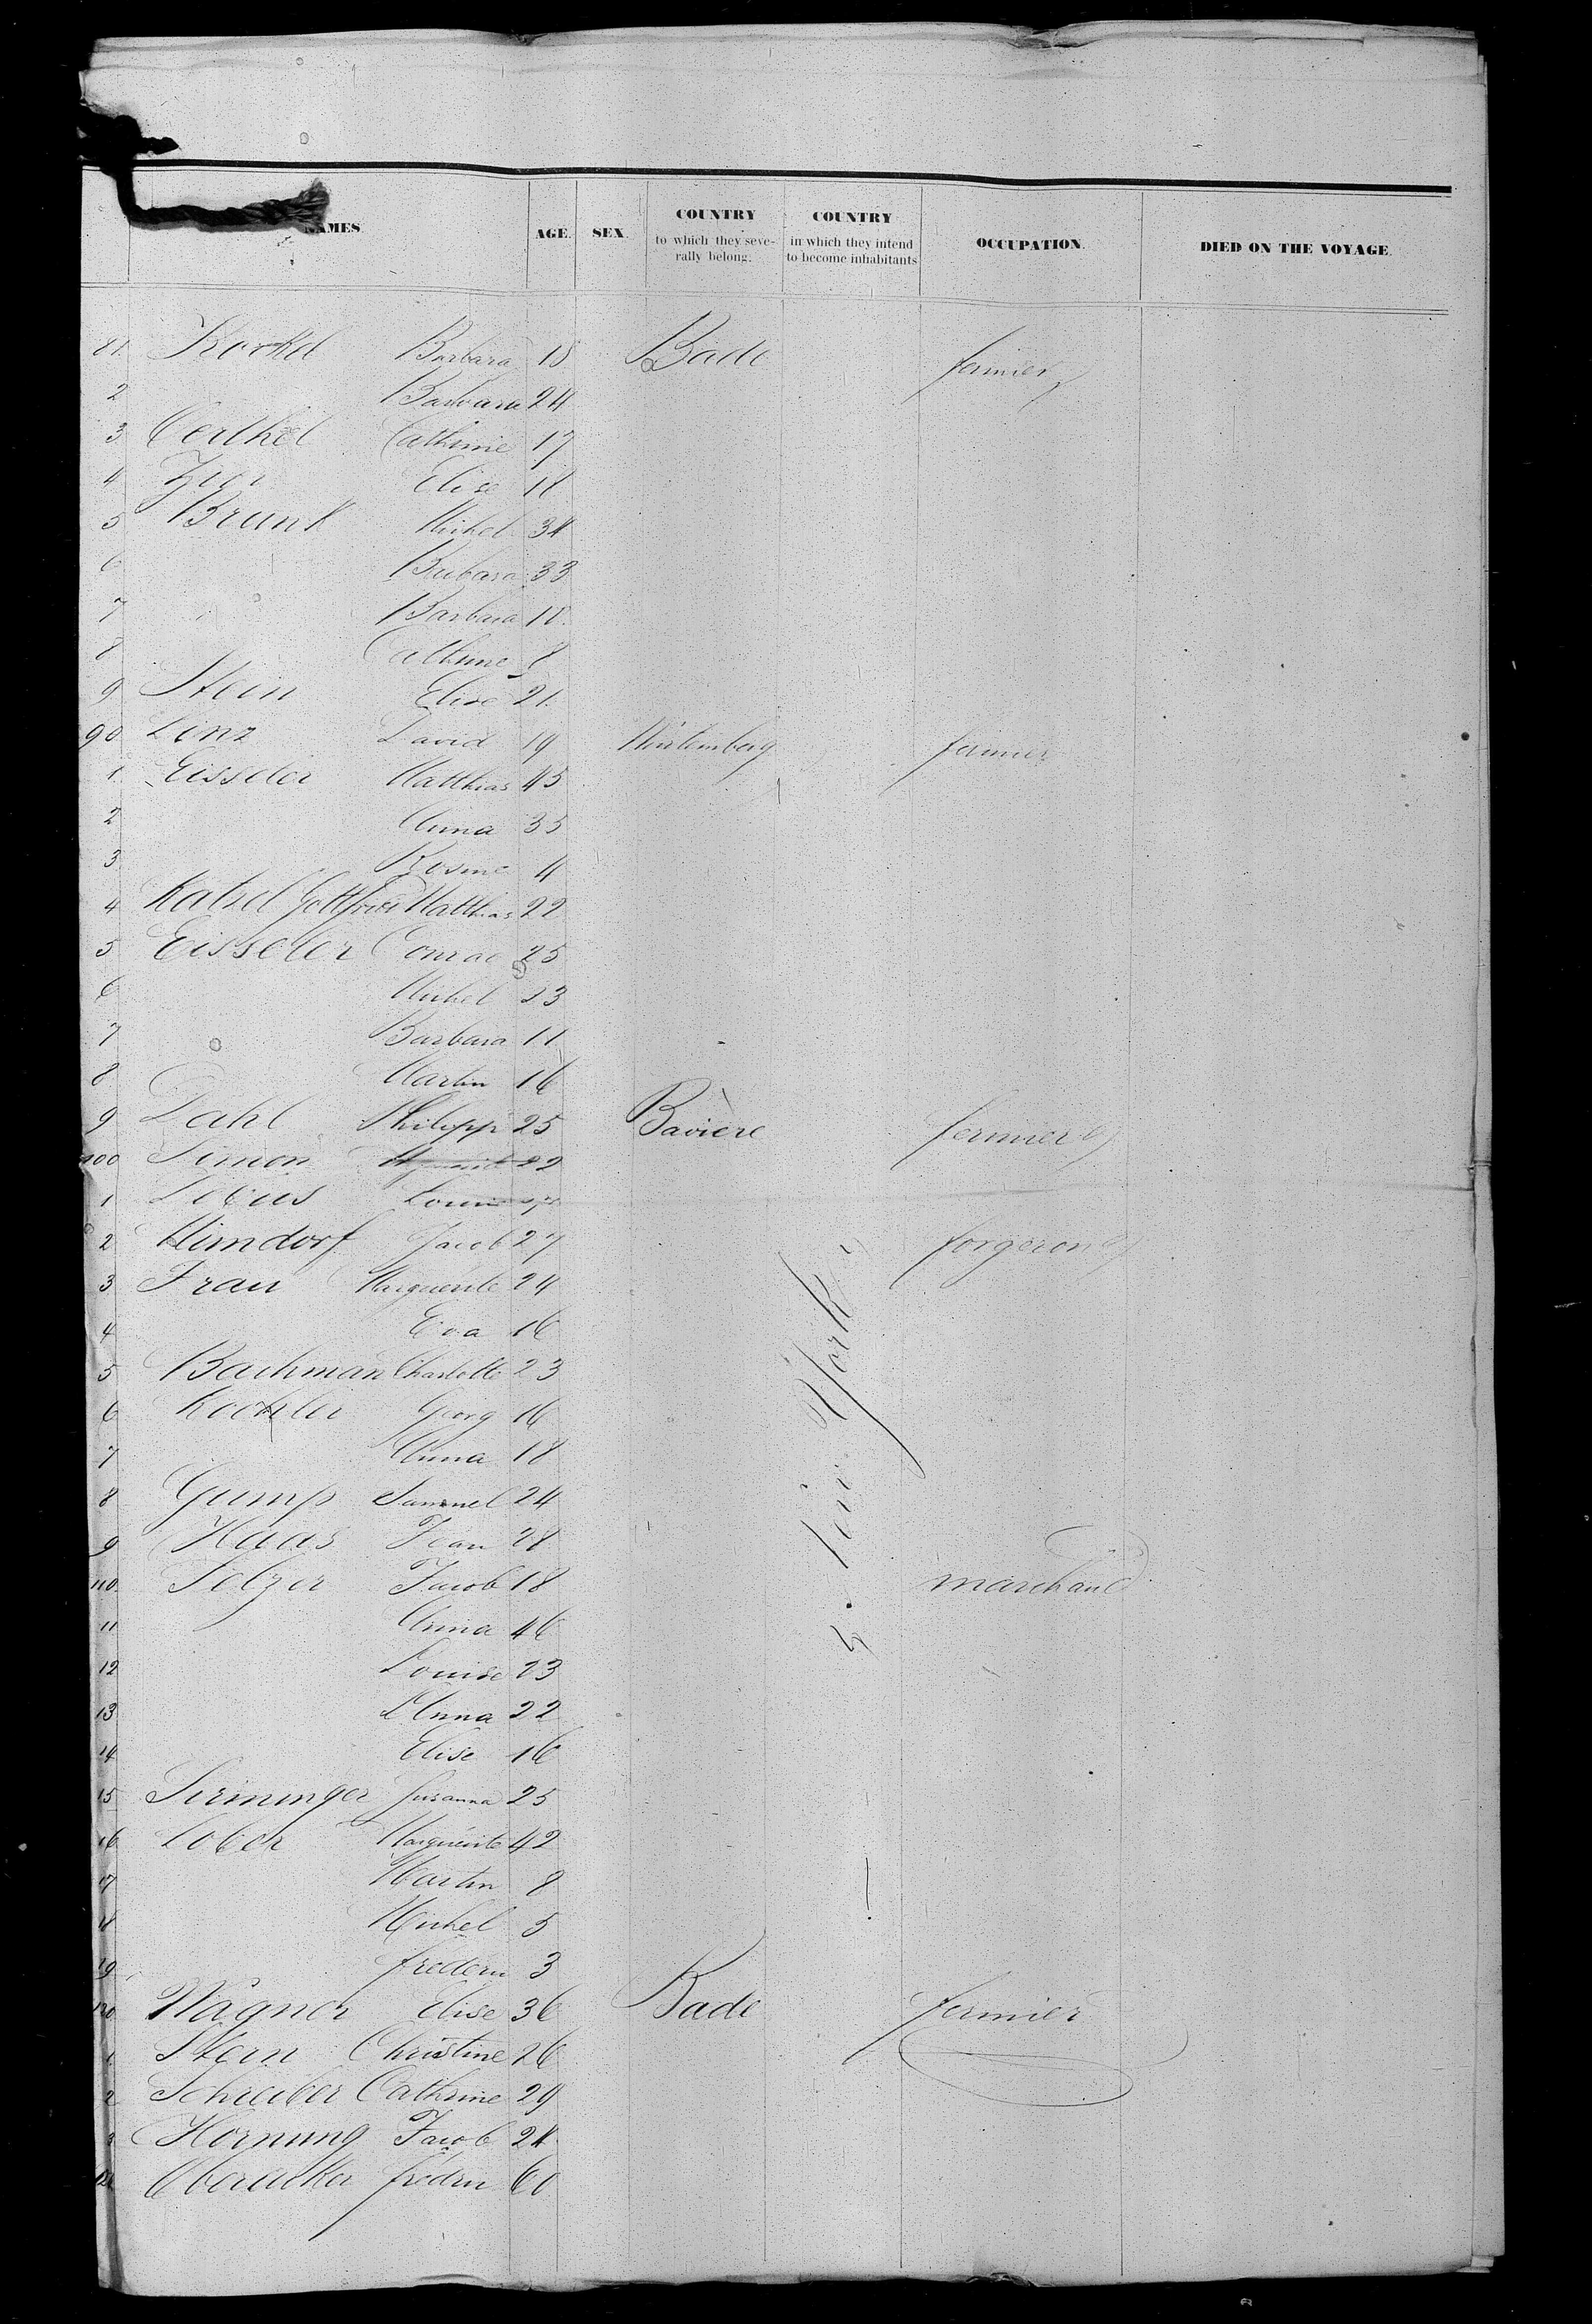 NAMES. AGE. SEX. COUNTRY to which they seve-rally belong. COUNTRY in which they intend to become inhabitants OCCUPATION. DIED ON THE VOYAGE.
81 Barbara 18 Bade fermier
2 Barbara 24
3 Oerthel Cathrine 17
4 Elise 18
5 Brunk Michel 34
6 Barbara 33
7 Barbara 10
8 Cathrine 8
9 Stein Elise 21
90 Linz David 19 Würtemberg fermier
1 Eisseler Matthias 45
2 Anna 35
3 Rosine 4
4 Gottfried Matthias 22
5 Eisseler Conrad 25
6 Michel 23
7 Barbara 11
8 Martin 16
9 Dahl Philipp 25 Bavière fermier
100 Simon 22
1 Louis
2 Jacob 27 forgeron
3 Frau Marguerite 24
4 Eva 16
5 Bachman Charlotte 23
6 Koehler Georg 16
7 Anna 18
8 Gump Samuel 24
9 Haas Jean 28
110 Selzer Jacob 18 marchand
11 Anna 46
12 Louise 23
13 Anna 22
14 Elise 16
15 Susanna 25
16 Lober Marguerite 42
17 Martin 8
18 Michel 5
19 3
120 Wagner Elise 36 Bade fermier
1 Stern Christine 26
2 Schreiber Cathrine 29
3 Hornung Jacob 24
124 Oberacker 60
York